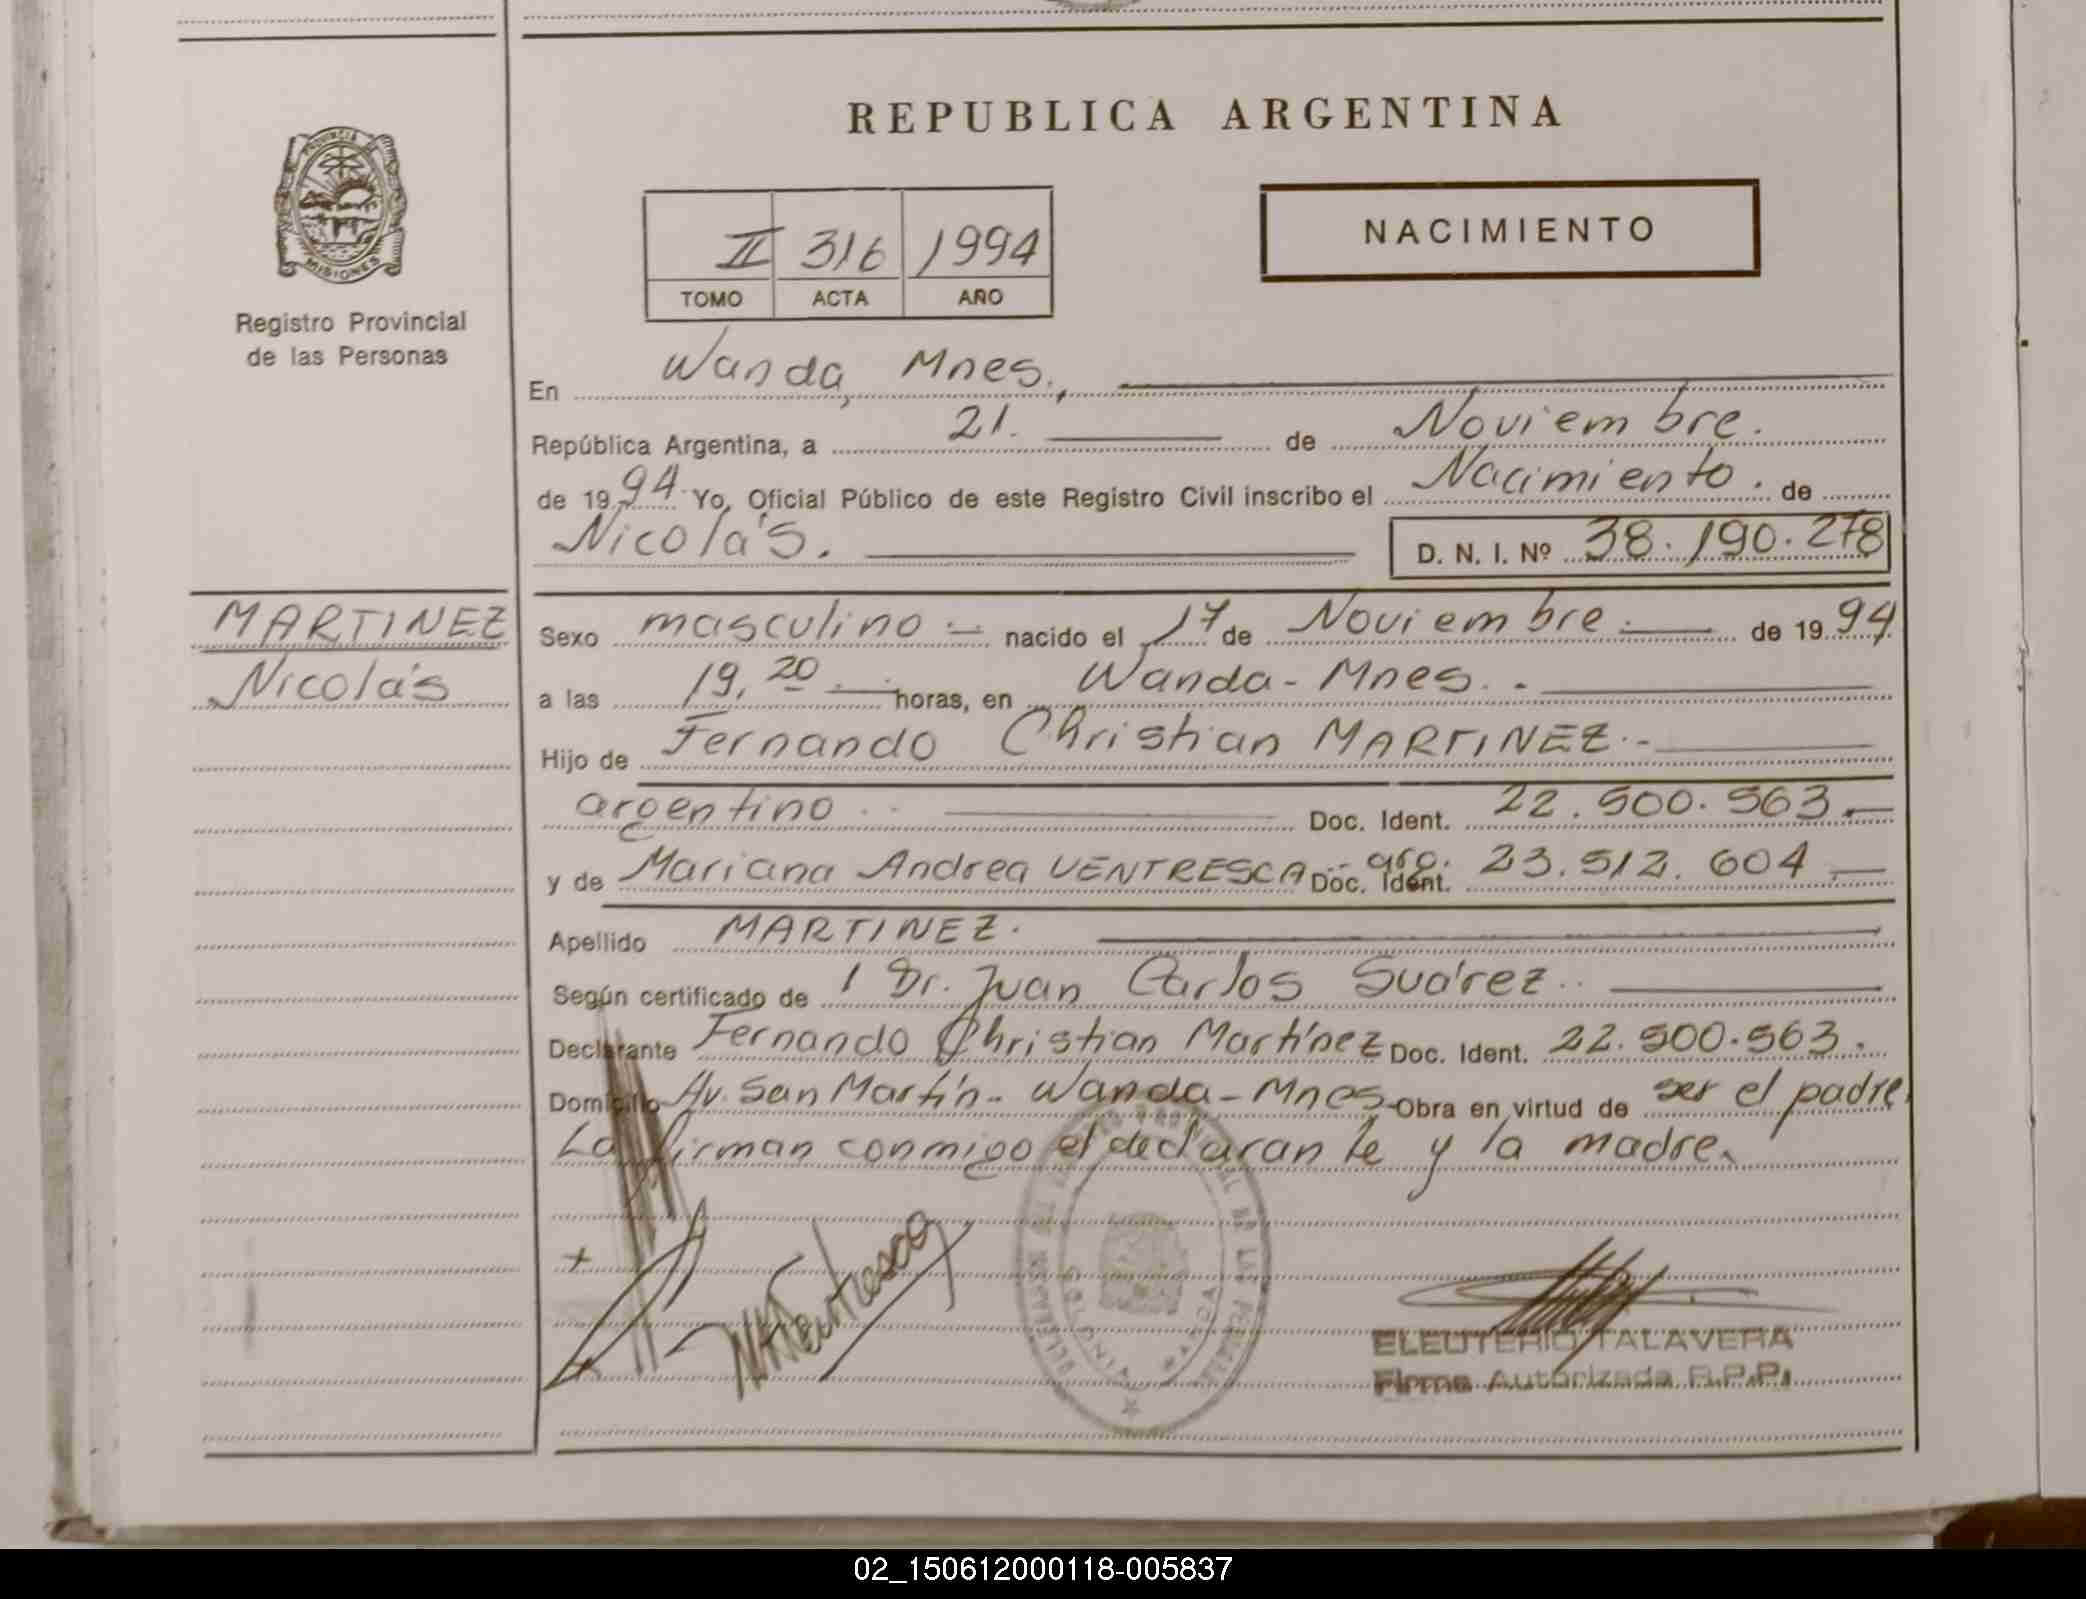 PROVINCIA DE
MISIONES
Registro Provincial
de las Personas
MARTINEZ
Nicolás
REPUBLICA ARGENTINA
II 316 1994
TOMO ACTA AÑO
NACIMIENTO
En Wanda, Mnes.,
República Argentina, a 21. de Noviembre.
de 1994 Yo, Oficial Público de este Registro Civil inscribo el Nacimiento. de
Nicolás. D. N. I. Nº 38.190.278
Sexo masculino nacido el 17 de Noviembre. de 1994
a las 19,20 horas, en Wanda - Mnes. -
Hijo de Fernando Christian MARTINEZ.-
argentino Doc. Ident. 22.500.563.-
y de Mariana Andrea VENTRESCA - arg. Doc. Ident. 23.512.604
Apellido MARTINEZ.
Según certificado de 1 Dr. Juan Carlos Suárez.
Declarante Fernando Christian Martínez Doc. Ident. 22.500.563.
Domicilio Av. San Martín - Wanda - Mnes - Obra en virtud de ser el padre.
La firman conmigo el declarante y la madre.
MAVentresca
ELEUTERIO TALAVERA
Firma Autorizada R.P.P.
02_150612000118-005837